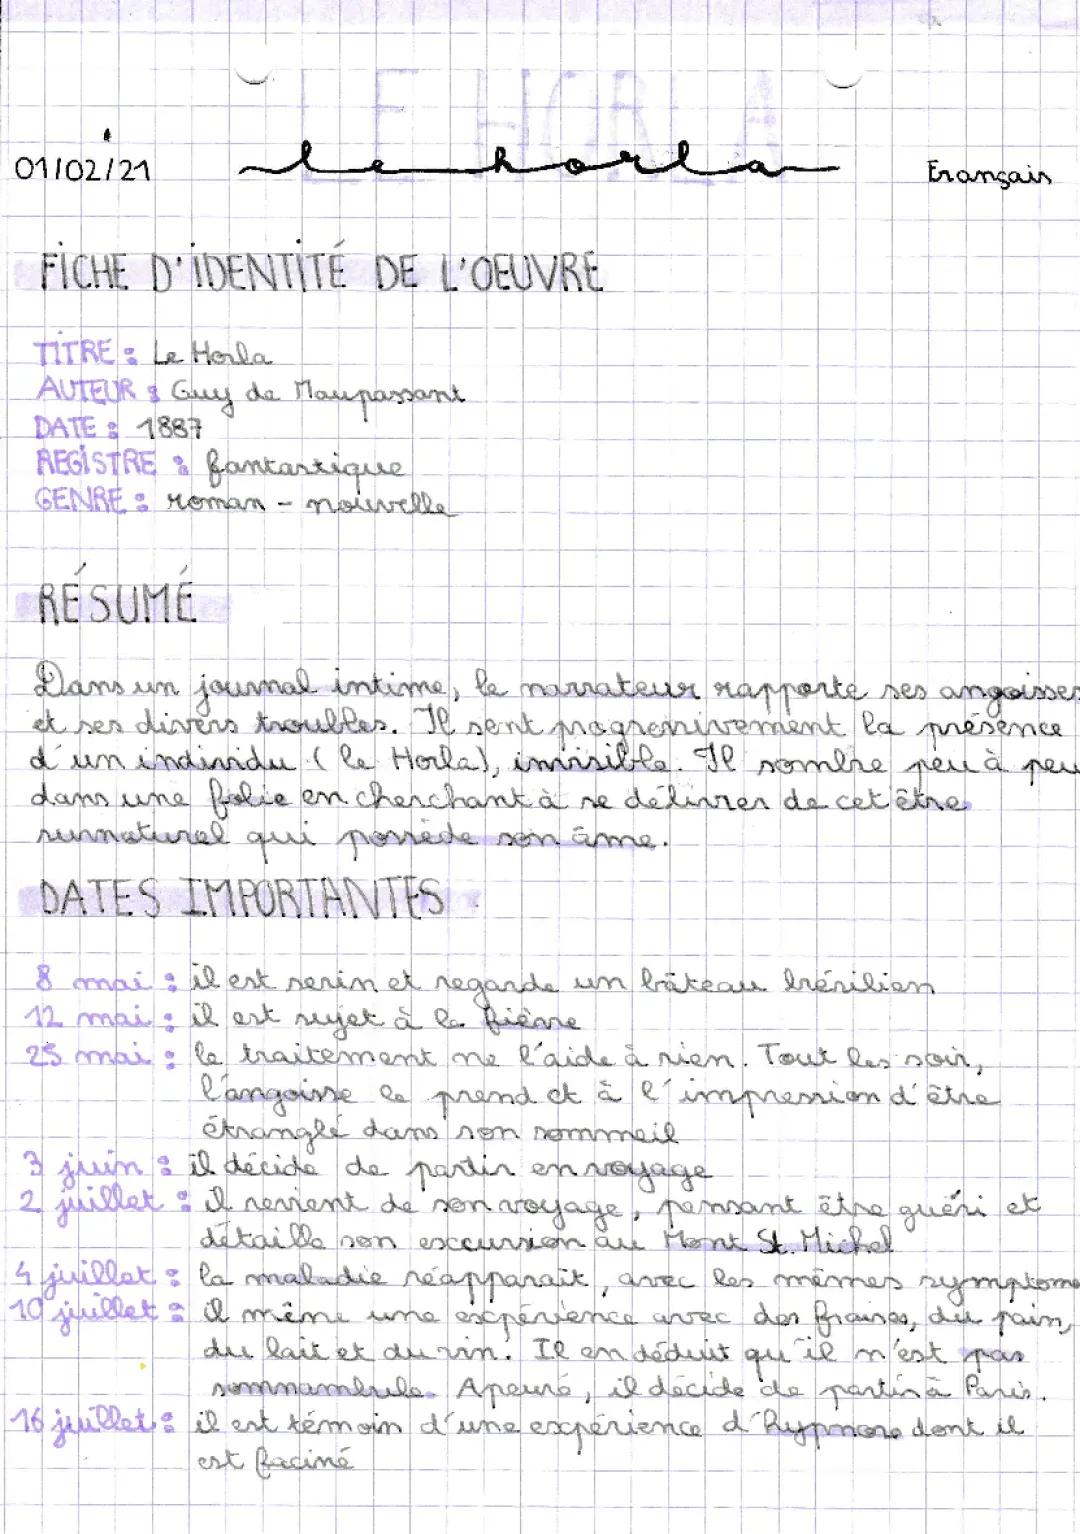 LE HORLA
01/02/21 le horla Français
FICHE D'IDENTITÉ DE L'OEUVRE
TITRE : Le Horla
AUTEUR : Guy de Maupassant
DATE : 1887
REGISTRE : fantastique
GENRE : roman - nouvelle
RÉSUMÉ
Dans un journal intime, le narrateur rapporte ses angoisses
et ses divers troubles. Il sent progressivement la présence
d'un individu (le Horla), invisible. Il sombre peu à peu
dans une folie en cherchant à se délivrer de cet être
surnaturel qui possède son âme.
DATES IMPORTANTES
8 mai : il est serin et regarde un bâteau brésilien
12 mai : il est sujet à la fièvre
25 mai : le traitement ne l'aide à rien. Tout les soir,
l'angoisse le prend et à l'impression d'être
étranglé dans son sommeil
3 juin : il décide de partir en voyage
2 juillet : il revient de son voyage, pensant être guéri et
détaille son excursion au Mont St. Michel
4 juillet : la maladie réapparait, avec les mêmes symptome
10 juillet : il mène une expérience avec des fraises, du pain,
du lait et du vin. Il en déduit qu'il n'est pas
somnambule. Apeuré, il décide de partir à Paris.
16 juillet : il est témoin d'une expérience d'hypnose dont il
est faciné